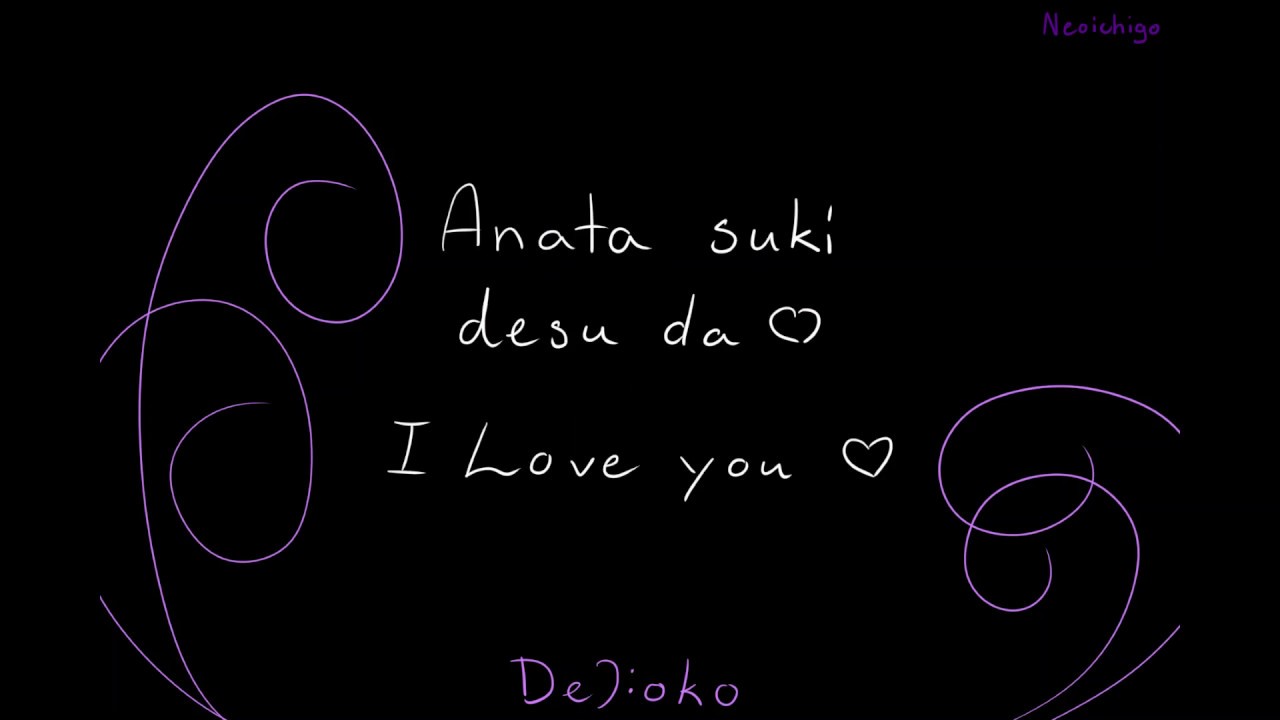 Neoichigo
Anata suki
desu da ♡
I Love you ♡